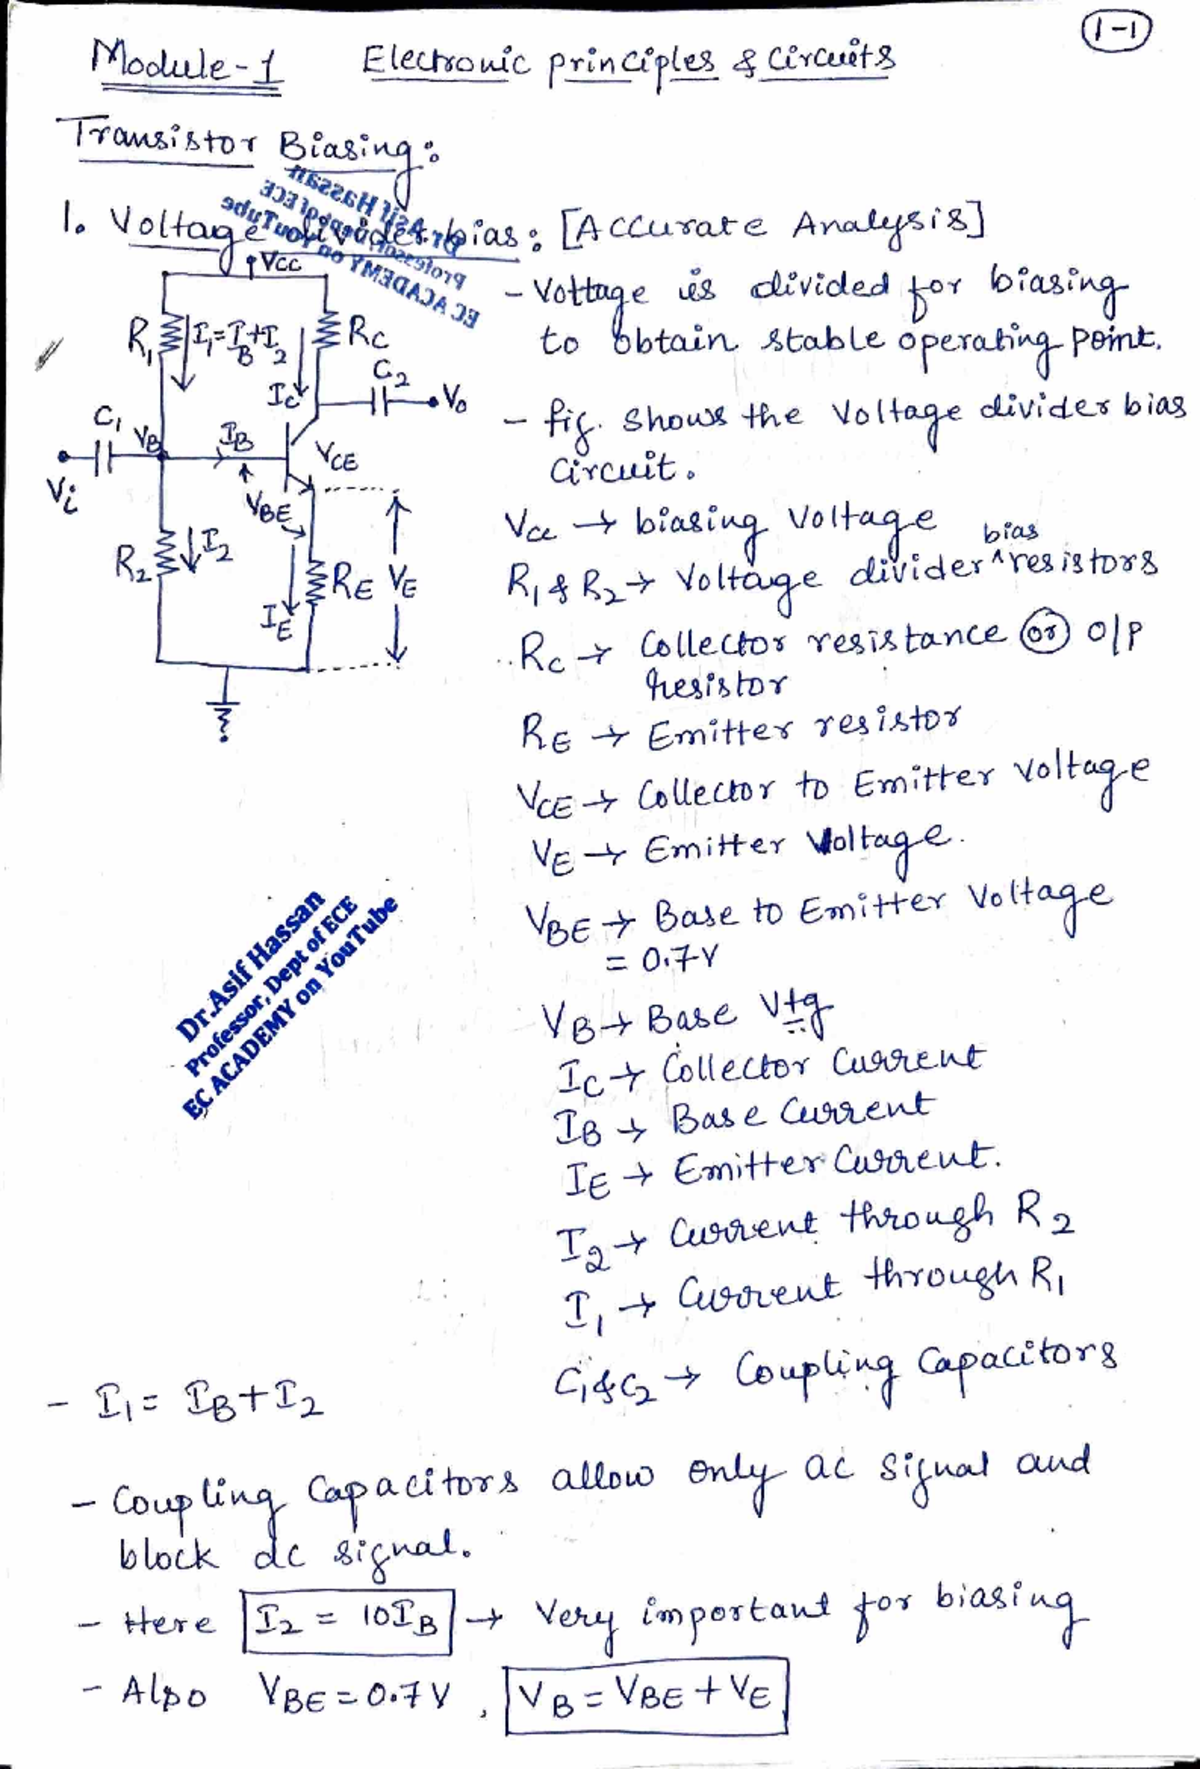 1-1
Module-1 Electronic principles & Circuits
Transistor Biasing:
1. Voltage divider bias: [Accurate Analysis]
Dr.Asif Hassan
Professor, Dept of ECE
EC ACADEMY on YouTube
VCC
R1 I1=IB+I2 RC
IC C2 Vo
C1 VB IB VCE
Vi VBE
R2 I2 RE VE
IE
- Voltage is divided for biasing
to obtain stable operating point.
- fig. shows the Voltage divider bias
Circuit.
Vcc → biasing Voltage
R1 & R2 → Voltage divider ^bias resistors
RC → Collector resistance (or) o/p
resistor
RE → Emitter resistor
VCE → Collector to Emitter Voltage
VE → Emitter Voltage.
VBE → Base to Emitter Voltage
= 0.7V
VB → Base Vtg
IC → Collector Current
IB → Base Current
IE → Emitter Current.
I2 → Current through R2
I1 → Current through R1
C1 & C2 → Coupling Capacitors
Dr.Asif Hassan
Professor, Dept of ECE
EC ACADEMY on YouTube
- I1 = IB + I2
- Coupling Capacitors allow only ac signal and
block dc signal.
- Here I2 = 10IB → Very important for biasing
- Also VBE = 0.7V, VB = VBE + VE